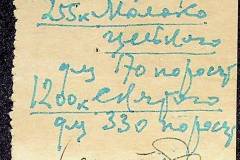 255к Молоко
цельного
для 170 порос
1200к снятого
для 330 порос